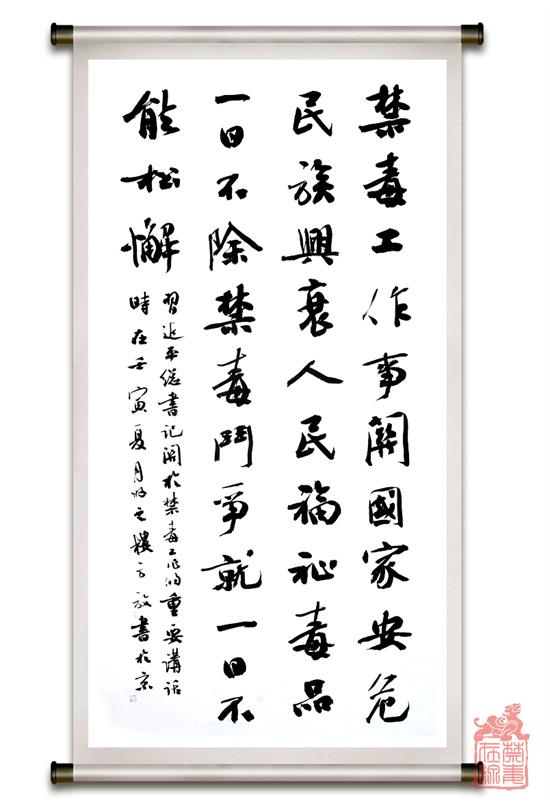 禁毒工作事關國家安危
民族興衰人民福祉毒品
一日不除禁毒鬥爭就一日不
能松懈
習近平總書記關於禁毒工作的重要講話
時在壬寅夏月書於京
禁毒在線